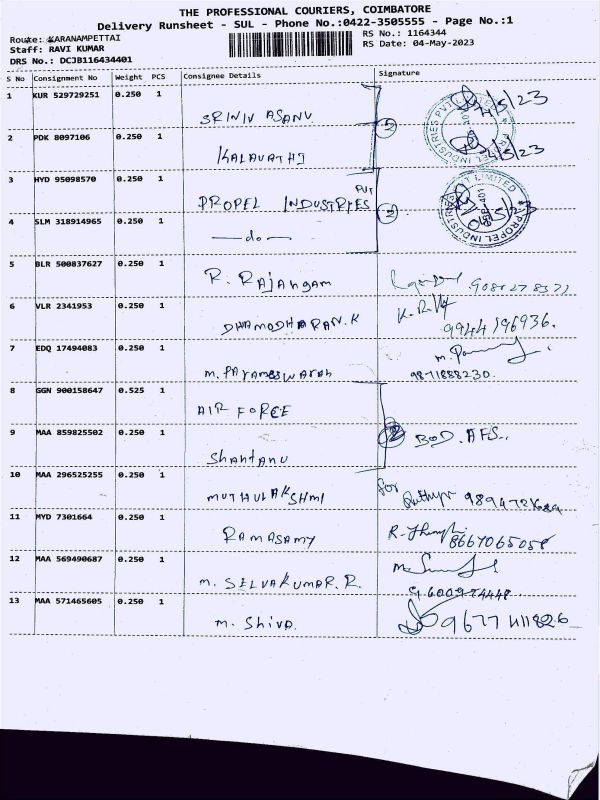 THE PROFESSIONAL COURIERS, COIMBATORE
Delivery Runsheet - SUL - Phone No.:0422-3505555 - Page No.:1
Route: KARANAMPETTAI RS No.: 1164344
Staff: RAVI KUMAR RS Date: 04-May-2023
DRS No.: DCJB116434401
S No Consignment No Weight PCS Consignee Details Signature
1 KUR 529729251 0.250 1 SRINIV ASANU 4/5/23
2 PDK 8097106 0.250 1 KALAVATHI 2 4/5/23
3 HYD 95098570 0.250 1 PROPEL INDUSTRIES PVT
4 SLM 318914965 0.250 1 —do— 2
PROPEL INDUSTRIES PVT LIMITED
5 BLR 500837627 0.250 1 R. Rajangam
6 VLR 2341953 0.250 1 DHAMODHARAN.K 9944196936.
7 EDQ 17494083 0.250 1 M. Parameswaran 9871888230.
8 GGN 900158647 0.525 1 AIR FORCE
9 MAA 859825502 0.250 1 Shantanu 2 BOD. AFS.
10 MAA 296525255 0.250 1 MUTHULAKSHMI for
11 MYD 7301664 0.250 1 RAMASAMY 8667065058
12 MAA 569490687 0.250 1 M. SELVAKUMAR. R. 9600974448
13 MAA 571465605 0.250 1 M. Shiva. 9677411826